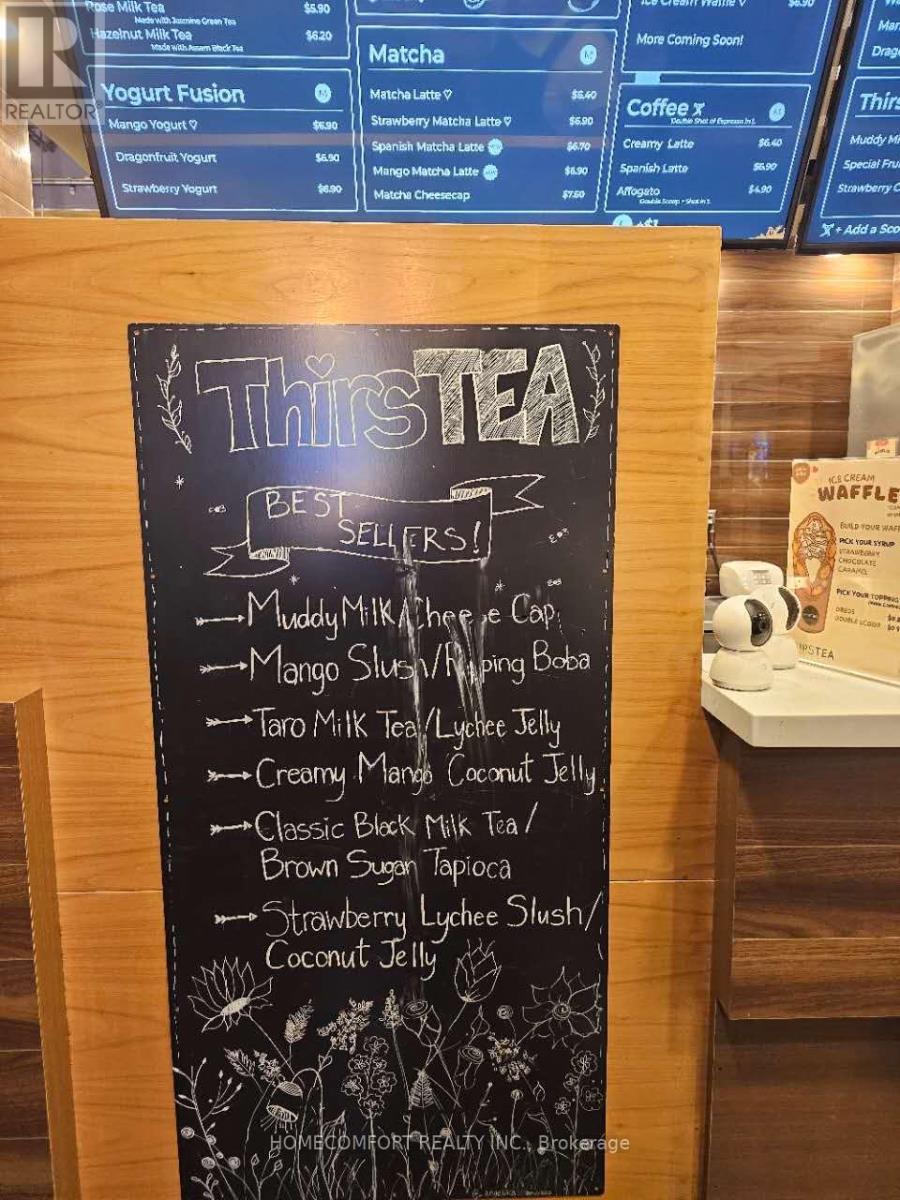 Rose Milk Tea $5.90
Made with Jasmine Green Tea
Hazelnut Milk Tea $6.20
Made with Assam Black Tea
Yogurt Fusion M
Mango Yogurt ♡ $6.90
Dragonfruit Yogurt $6.90
Strawberry Yogurt $6.90
Matcha M
Matcha Latte ♡ $6.40
Strawberry Matcha Latte ♡ $6.90
Spanish Matcha Latte $6.70
Mango Matcha Latte $6.90
Matcha Cheesecap $7.50
Ice Cream Waffle ♡ $6.90
More Coming Soon!
Coffee
Double Shot of Espresso in L
Creamy Latte $6.40
Spanish Latte $6.90
Affogato $4.90
Double Scoop + Shot in L
L +$1
Man
Drago
Thirs
Muddy Mi
Special Fru
Strawberry C
+ Add a Sco
REALTOR
ThirsTEA
BEST
SELLERS!
Muddy Milk/Cheese Cap
Mango Slush/Popping Boba
Taro Milk Tea/Lychee Jelly
Creamy Mango Coconut Jelly
Classic Black Milk Tea/
Brown Sugar Tapioca
Strawberry Lychee Slush/
Coconut Jelly
ICE CREAM
WAFFLE
BUILD YOUR WAFF
PICK YOUR SYRUP
STRAWBERRY
CHOCOLATE
CARAMEL
PICK YOUR TOPPING
OREOS
DOUBLE SCOOP
IRSTEA
HOMECOMFORT REALTY INC., Brokerage